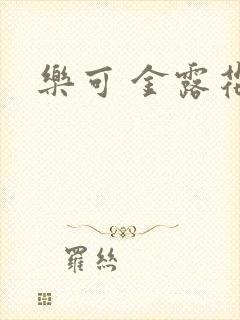 樂可 金露花
羅絲